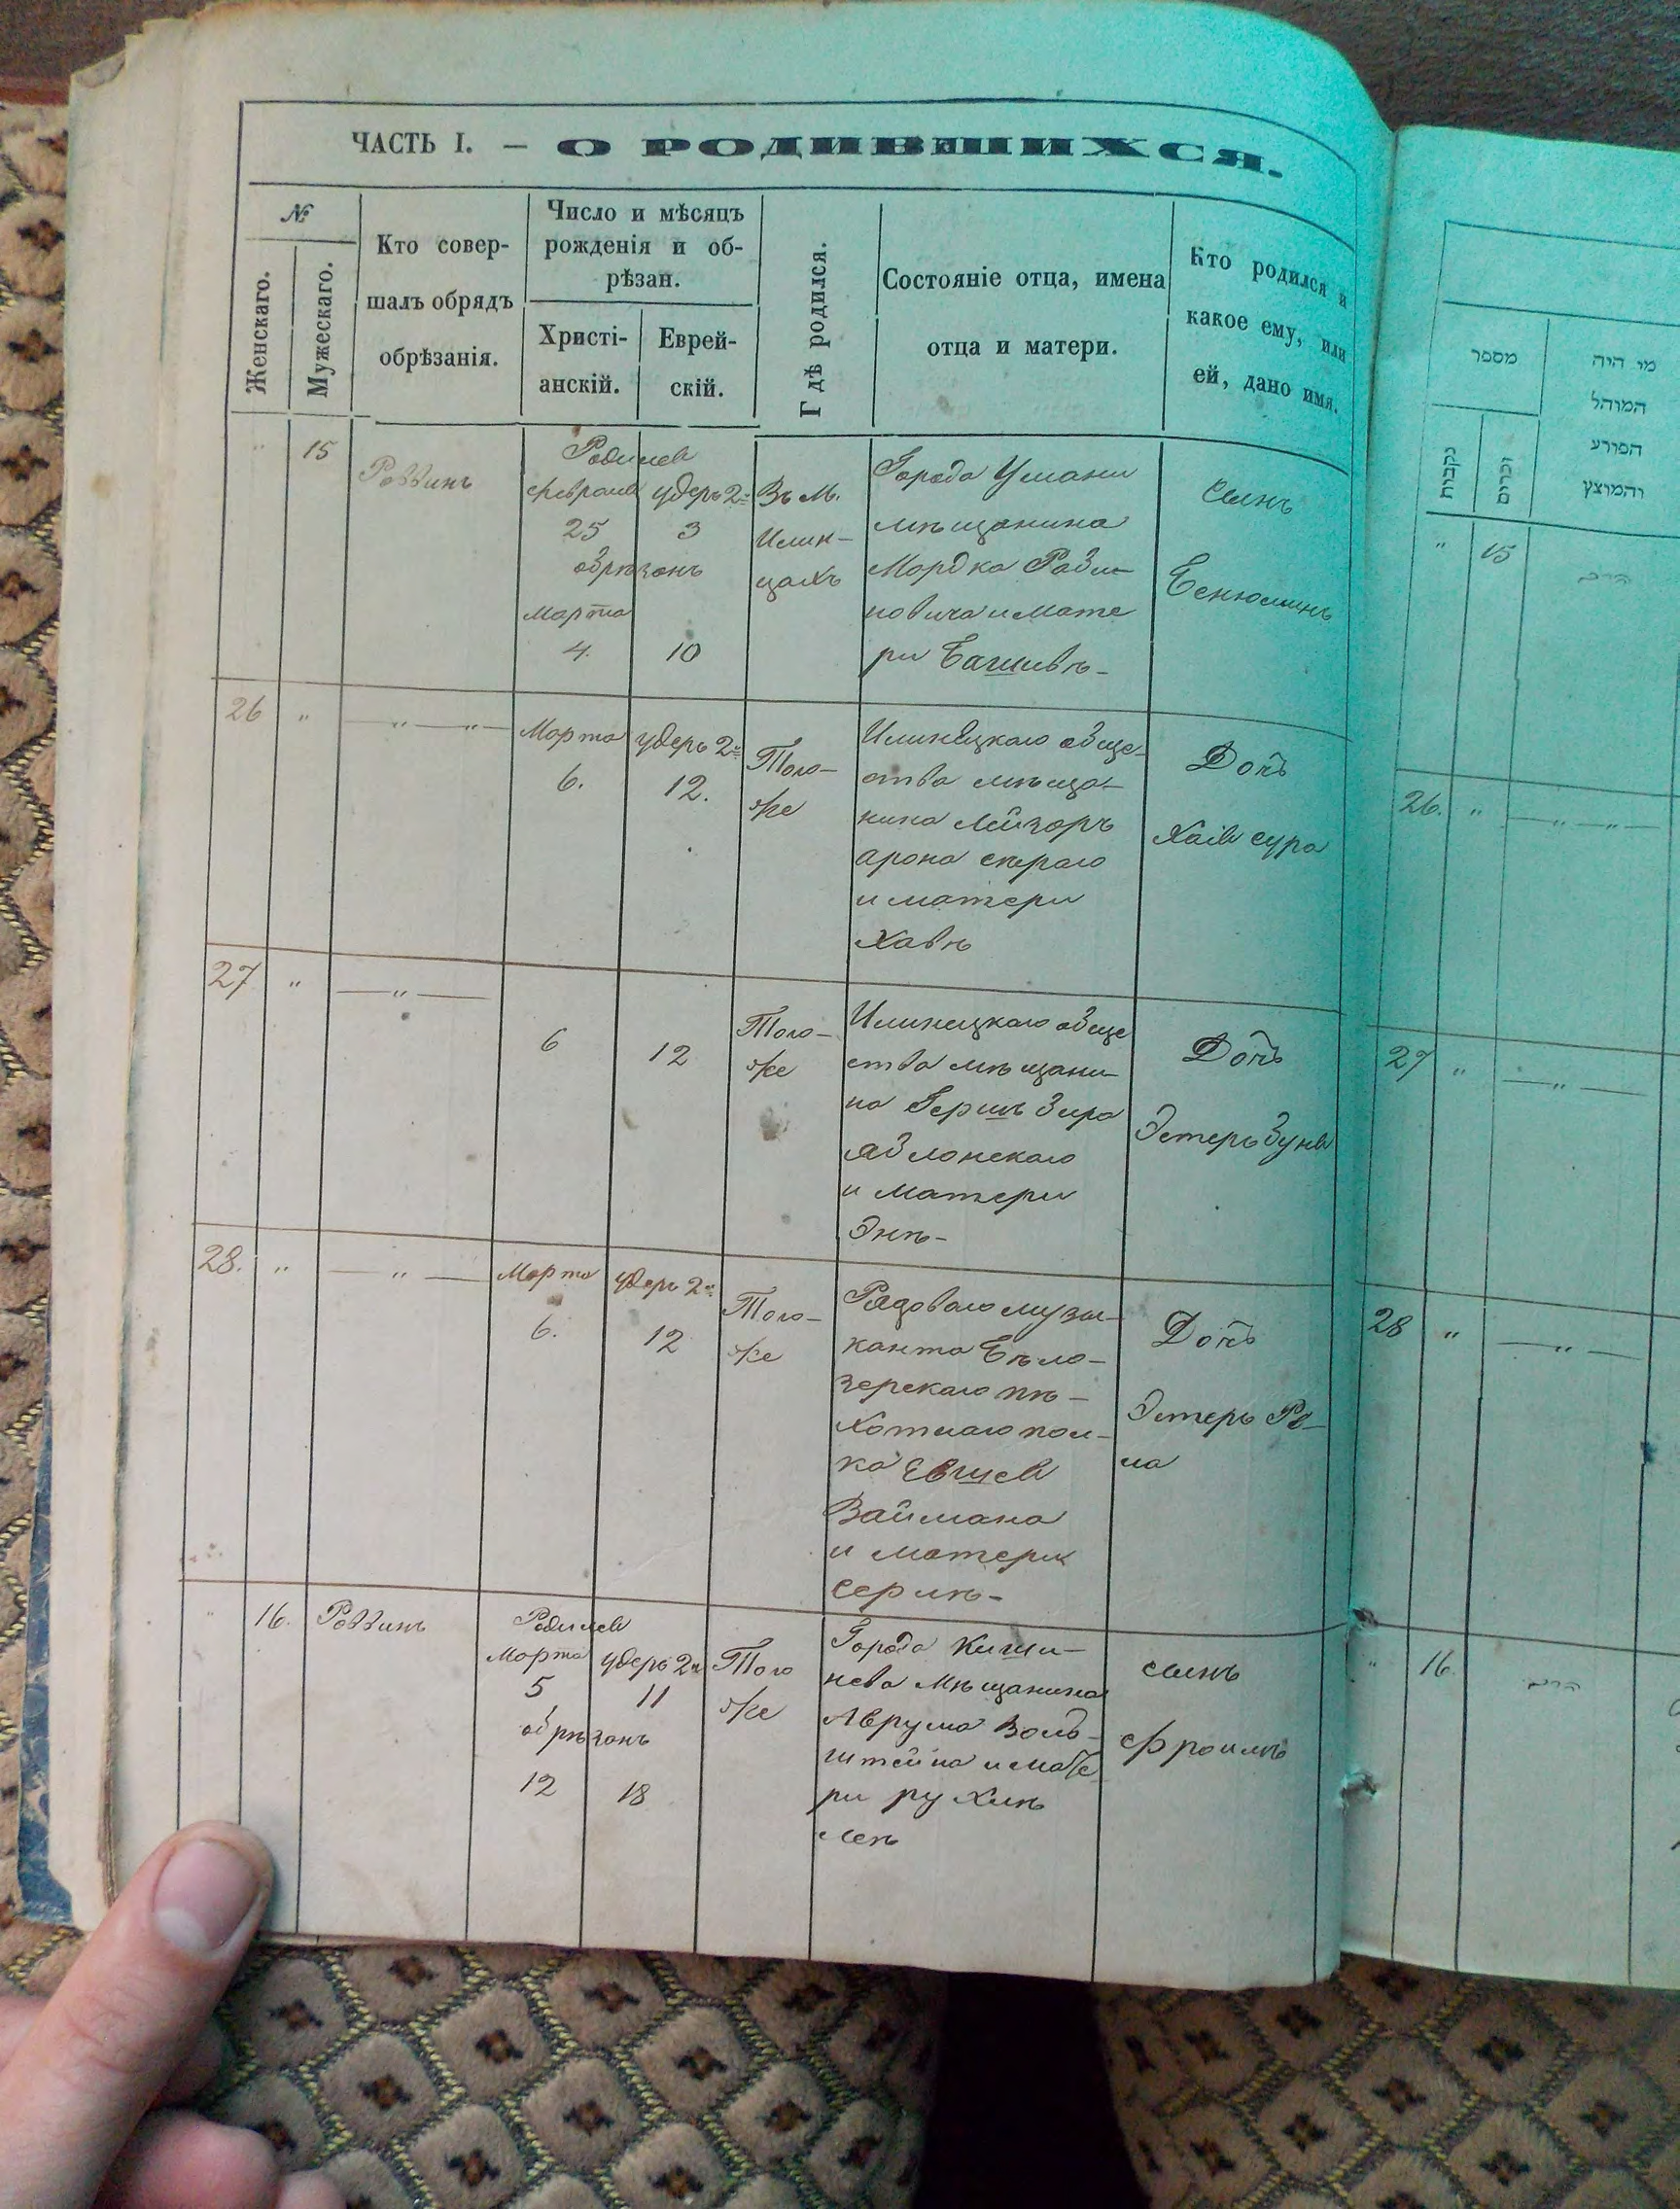 ЧАСТЬ I. — О РОДИВШИХСЯ.
№
Женскаго.
Мужескаго.
Кто совер-
шалъ обрядъ
обрѣзанія.
Число и мѣсяцъ
рожденія и об-
рѣзан.
Христі-
анскій.
Еврей-
скій.
Гдѣ родился.
Состояніе отца, имена
отца и матери.
Кто родился и
какое ему, или
ей, дано имя.
" 15
Раввинъ
Родился
февраля
25
обрѣзанъ
Марта
4.
удеръ 2й
3
10
Въ М.
Илин-
цахъ
Города Умани
мѣщанина
Мордка Раби-
новича и мате
ри Башивѣ-
Сынъ
Бенюминъ
26 " — " — " —
Марта
6.
удеръ 2й
12.
Того-
же
Илинецкаго обще-
ства мѣща-
нина Лейзоръ
арона
и матери
Хавѣ
Дочь
Хаія сура
27 " — " —
6
12
Того-
же
Илинецкаго обще
ства мѣщани-
на Гершъ
яблонскаго
и матери
Энѣ-
Дочь
Эстеръ Зуня
28. " — " —
Марта
6.
удеръ 2й
12
Того-
же
Рядоваго музы-
канта Бѣло-
зерскаго пѣ-
хотнаго пол-
ка Евшея
Ваймана
и матери
Серлѣ-
Дочь
Эстеръ
" 16. Раввинъ
Родился
Марта
5
обрѣзанъ
12
удеръ 2й
11
18
Того
же
Города Киши-
нева Мѣщанина
Аврума Воль-
штейна и мате
ри рухлѣ
леѣ
сынъ
Фроимъ
מספר
נקבות
זכרים
מי היה
המוהל
הפורע
והמוצץ
" 15
הרב
26. " — " — " —
27 " — " —
28 " — " —
" 16.
הרב